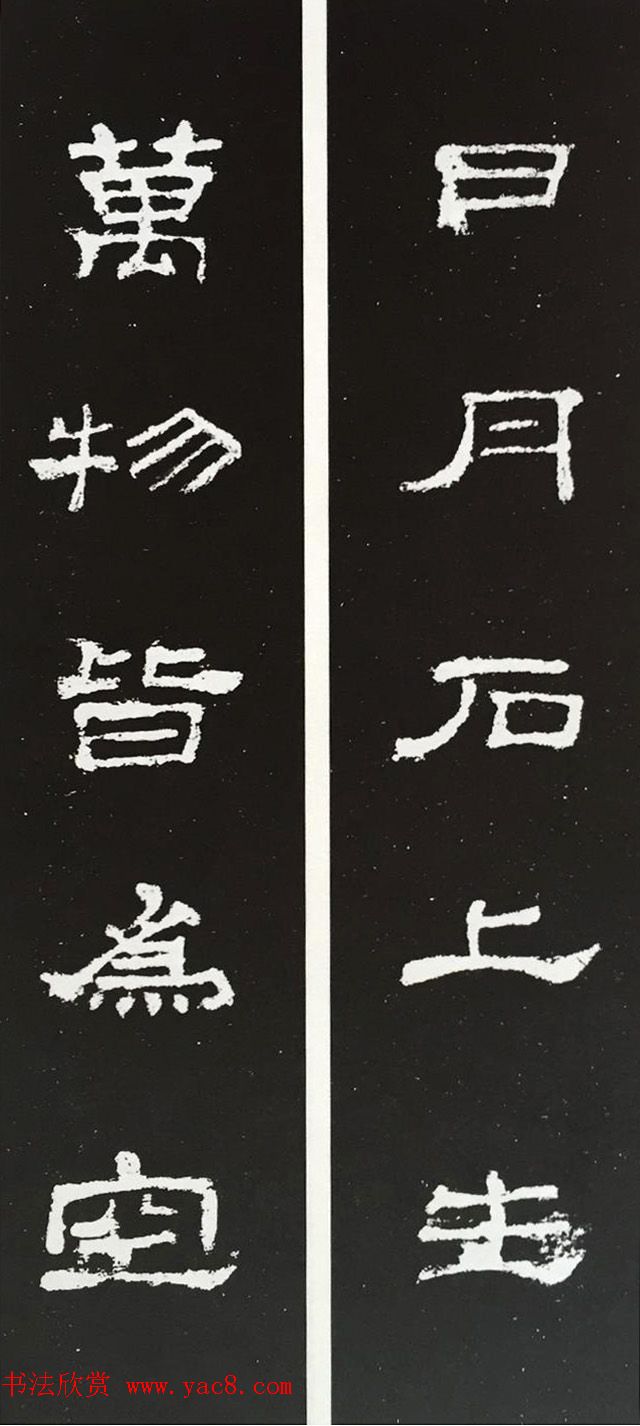 日月石上生
萬物皆為空
书法欣赏 www.yac8.com